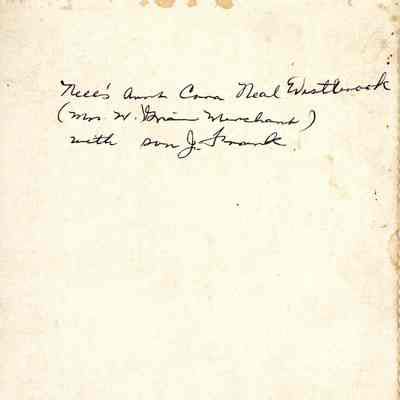 Nell's Aunt Cora Neal Westbrook
(Mrs W. Brian Merchant)
with son J. Frank